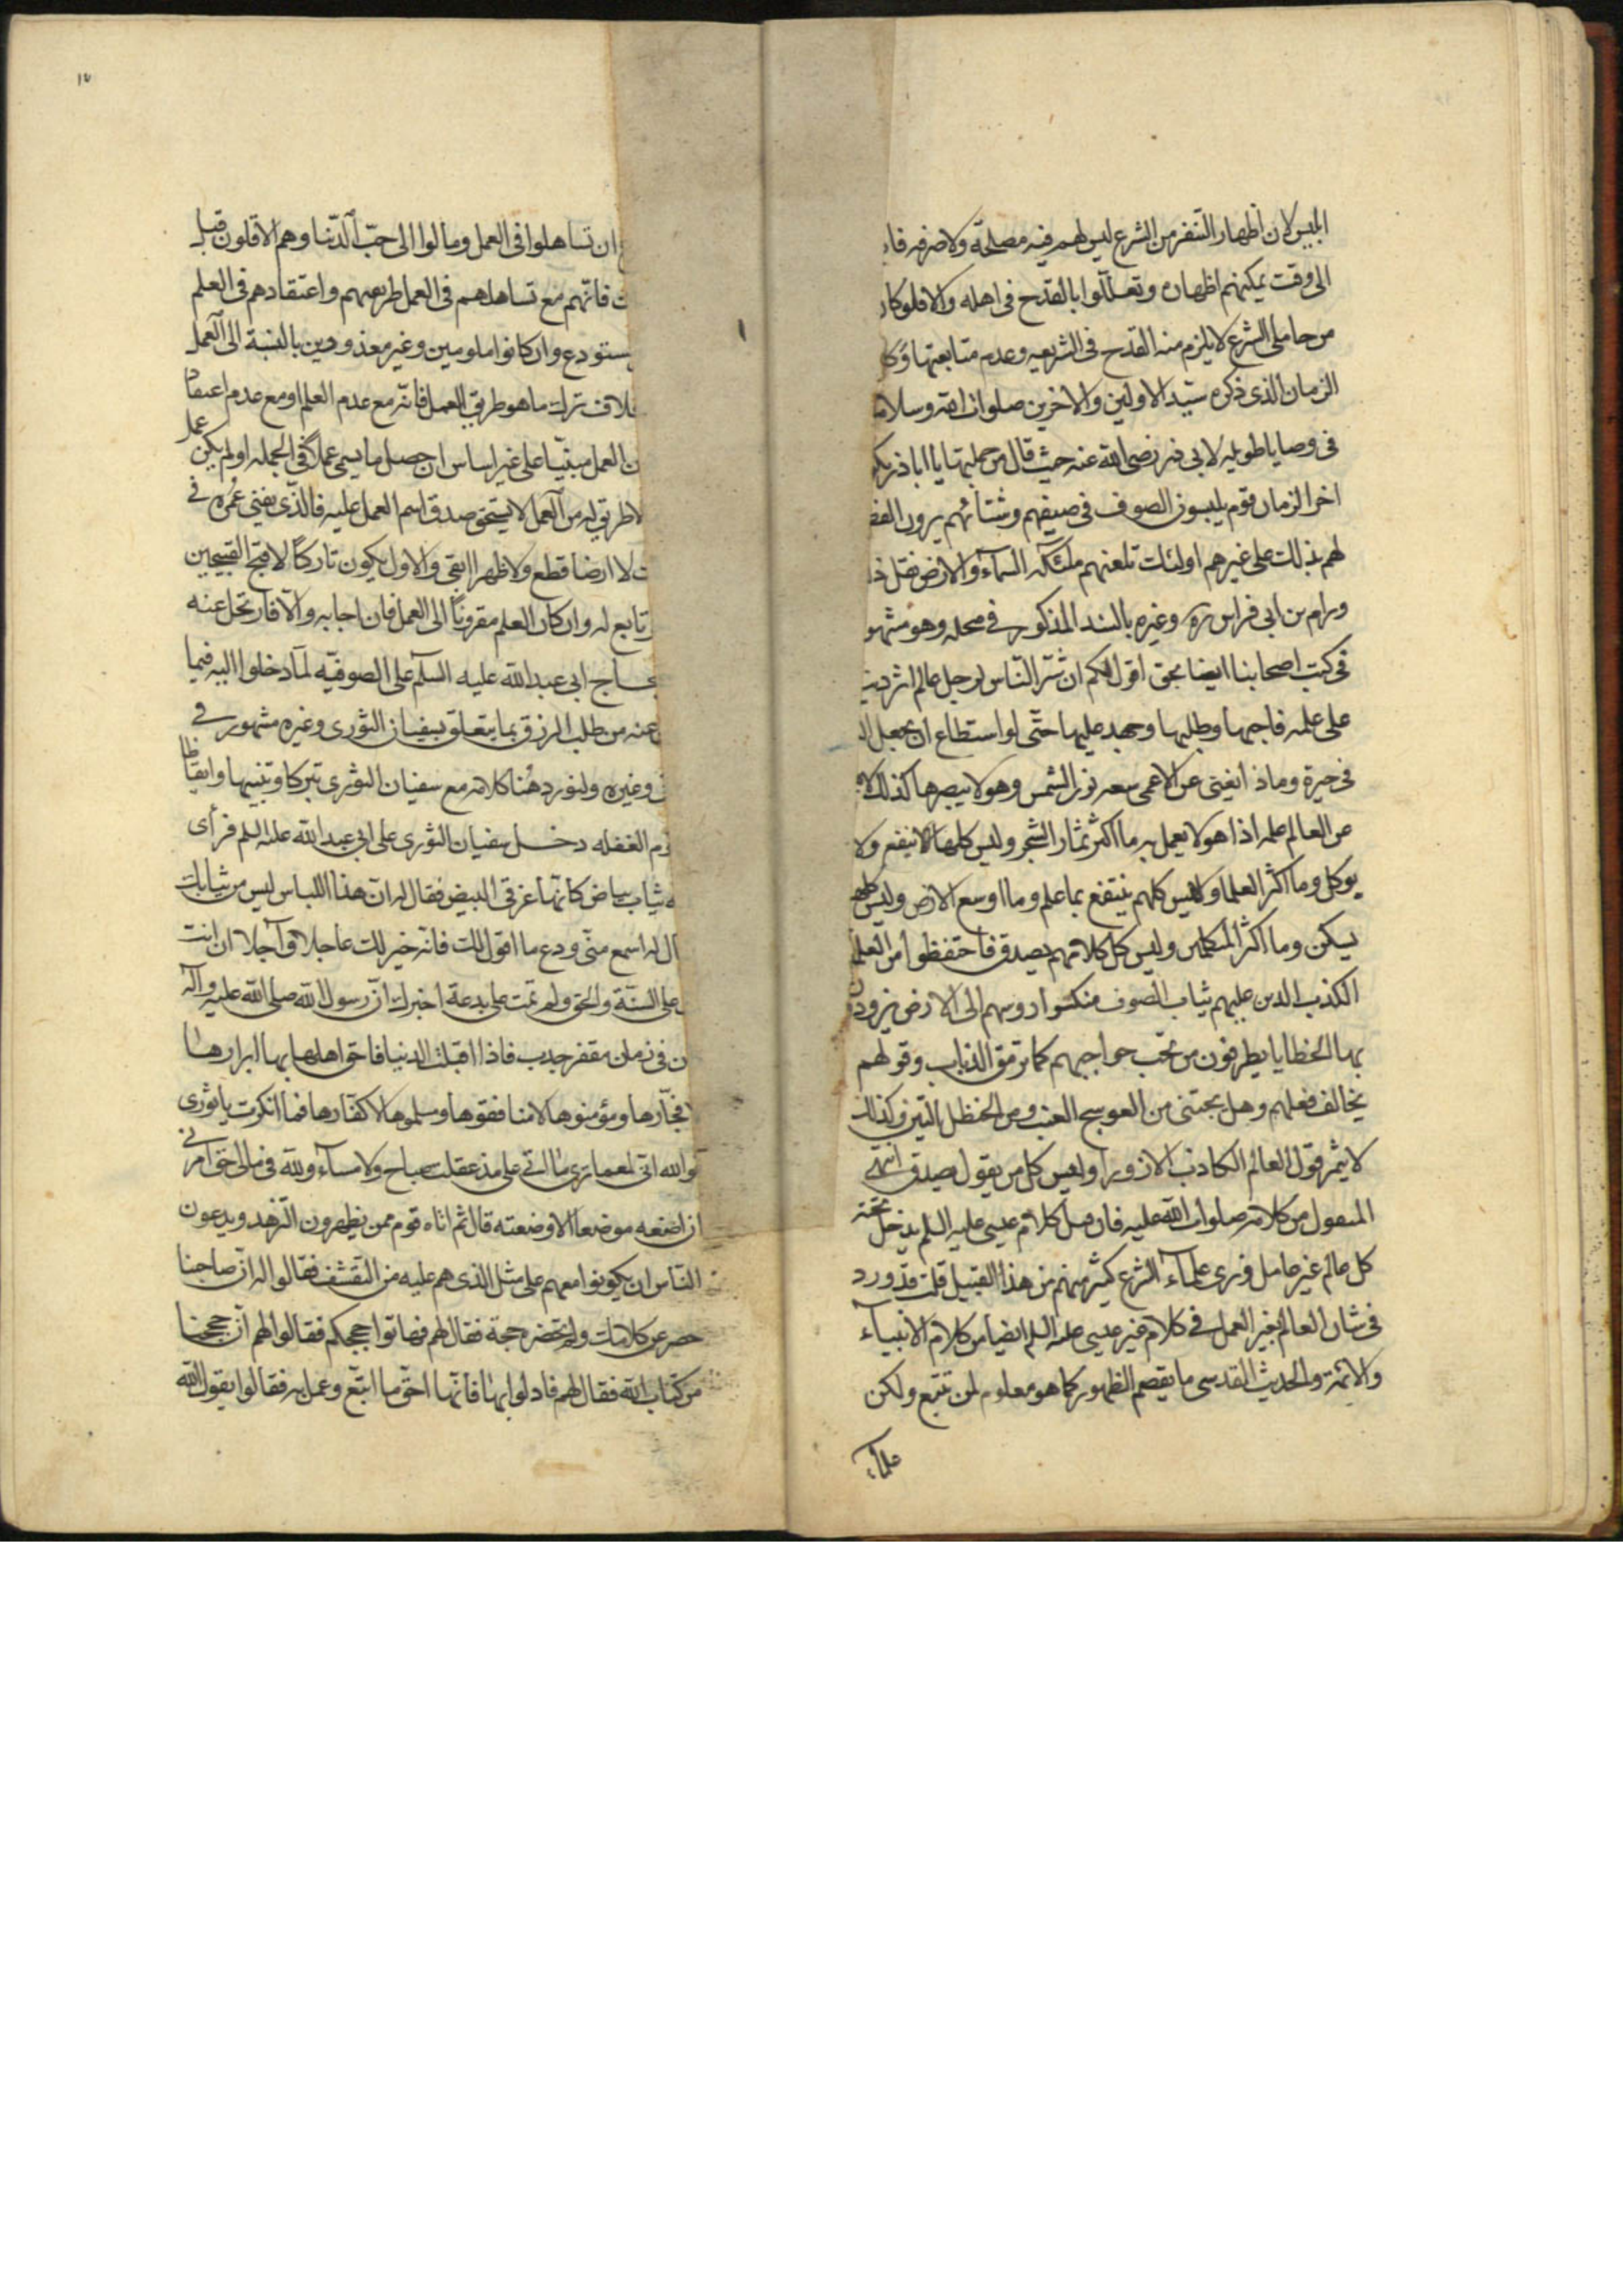 ابليس لان اظهار التنفر من الشرع ليس لهم فيه مصلحة ولا صرفه فا
الى وقت يمكنهم اظهاره وتعللوا بالقدح فى اهله والا فلو كا
من حاملى الشرع لا يلزم منه القدح فى الشريعه وعدم متابعتها وكا
الزمان الذى ذكره سيد الاولين والاخرين صلوات الله وسلا
فى وصايا طويله لابى ذر رضى الله عنه حيث قال من جملتها يا اباذر يكو
اخر الزمان قوم يلبسون الصوف فى صيفهم وشتائهم يرون الفض
لهم بذلك على غيرهم اولئك تلعنهم ملئكة السماء والارض نقل ذ
ورام بن ابى فراس ره وغيره بالسند المذكور فى محله وهو مشهو
فى كتب اصحابنا ايضا بحق اقول لكم ان شر الناس لرجل عالم اثر دن
على علمه فاحبها وطلبها وجهد عليها حتى لو استطاع ان يجعل ال
فى حيرة وماذا يغنى عن الاعمى سعه نور الشمس وهو لا يبصرها كذلك لا
عن العالم علمه اذا هو لا يعمل به ما اكثر ثمار الشجر وليس كلها ينفع ولا
يوكل وما اكثر العلما وليس كلهم ينتفع بما علم وما اوسع الارض وليس كلها
يسكن وما اكثر المتكلمين وليس كل كلامهم يصدق فاحتفظوا من العلما
الكذبه الذين عليهم ثياب الصوف منكسوا روسهم الى الارض يزورون
بها الخطايا يطرفون من تحت حواجبهم كما ترمق الذئاب وقولهم
يخالف فعلهم وهل يجتنى من العوسج العنب ومن الحنظل التين وكذلك
لا يثمر قول العالم الكاذب الا زورا وليس كل من يقول يصدق انتهى
المنقول من كلامه صلوات الله عليه فان قيل كلام عيسى عليه السلم يدخل تحته
كل عالم غير عامل ونرى علماء الشرع كثير منهم من هذا القبيل قلت قد ورد
فى شان العالم بغير العمل فى كلام غير عيسى عليه السلم ايضا من كلام الانبياء
والائمة والحديث القدسى ما يقصم الظهور كما هو معلوم لمن تتبع ولكن
علماء
١٧
ان تساهلوا فى العمل ومالوا الى حب الدنيا وهم الاقلون قبل
فانهم مع تساهلهم فى العمل طريقهم واعتقادهم فى العلم
مستودع وان كانوا ملومين وغير معذورين بالنسبة الى العمل
خلاف ترك ما هو طريق العمل فانه مع عدم العلم او مع عدم اعتقاد
العمل مبنيا على غير اساس ان حصل ما يسمى عملا فى الجمله او لم يكن عمل
لا طريق له من العمل لا يستحق صدق اسم العمل عليه فالذى يفنى عمره فى
لا ارضا قطع ولا ظهرا ابقى والاول يكون تاركا لاقبح القبيحين
تابع له وان كان العلم مقرونا الى العمل فان اجابه والا فارتحل عنه
ابى عبد الله عليه السلم على الصوفيه لما دخلوا اليه فيما
عنه من طلب الرزق بما يتعلق بسفيان الثورى وغيره مشهور فى
وغيره ولنورد هنا كلامه مع سفيان الثورى تبركا وتنبيها وايقاظا
الغفله دخل سفيان الثورى على ابى عبد الله عليه السلم فراى
ثياب بياض كانها غرقى البيض فقال له ان هذا اللباس ليس من ثيابك
ال له اسمع منى ودع ما اقول لك فانه خير لك عاجلا واجلا ان انت
على السنة والحق ولم تمت على بدعة اخبرك ان رسول الله صلى الله عليه واله
فى زمان مقفر جدب فاذا اقبلت الدنيا فاحق اهلها بها ابرارها
لا فجارها ومؤمنوها لا منافقوها ومسلموها لا كفارها فما انكرت يا ثورى
فوالله انى لمع ما ترى ما اتى على مذ عقلت صباح ولا مساء ولله فى مالى حق امرنى
ان اضعه موضعا الا وضعته قال ثم اتاه قوم ممن يظهرون الزهد ويدعون
الناس ان يكونوا معهم على مثل الذى هم عليه من التقشف فقالوا له ان صاحبنا
حصر عن كلامك ولم تحضره حجة فقال لهم فهاتوا حججكم فقالوا لهم ان حججنا
من كتاب الله فقال لهم فادلوا بها فانها احق ما اتبع وعمل به فقالوا يقول الله